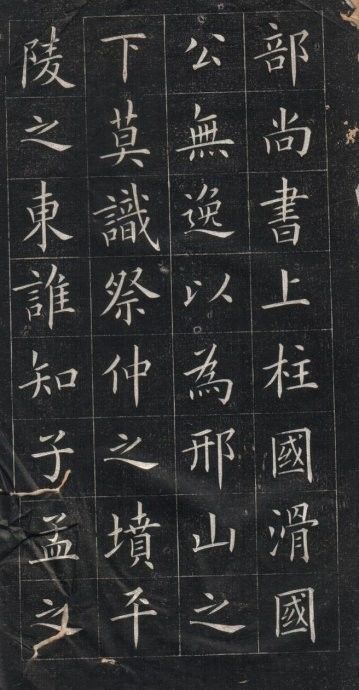 部尚書上柱國滑國
公無逸以為邢山之
下莫識祭仲之墳平
陵之東誰知子孟之